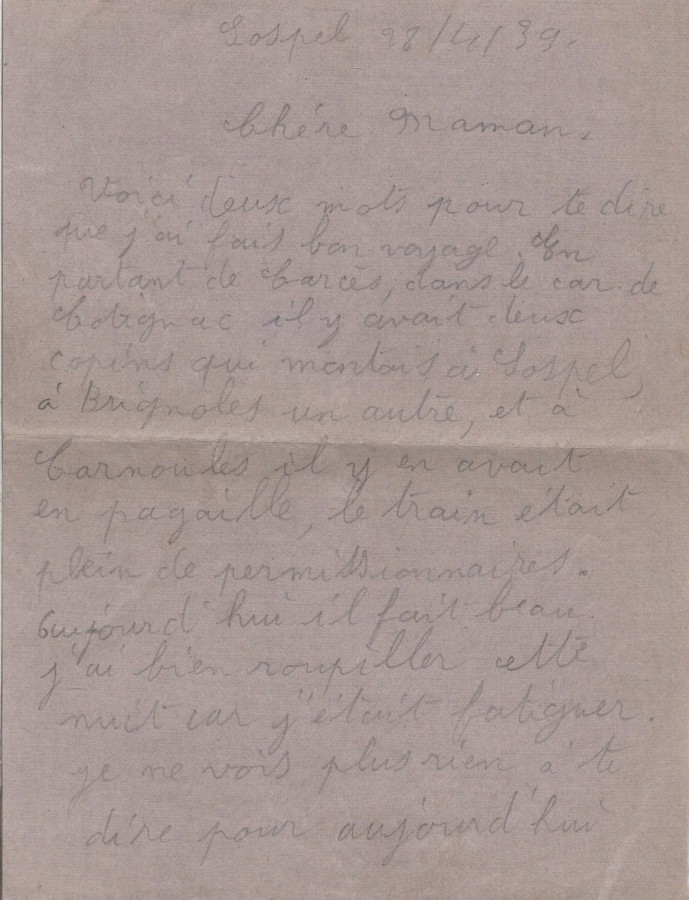 Sospel 28/4/39.
Chére Maman.
Voici deux mots pour te dire
que j'ai fais bon voyage. En
partant de Carcès, dans le car de
Cotignac il y avait deux
copins qui montais à Sospel,
à Brignoles un autre, et à
Carnoules il y en avait
en pagaille, le train était
plein de permissionnaires.
Aujourd'hui il fait beau.
j'ai bien roupiller cette
nuit car j'était fatiguer.
je ne vois plus rien à te
dire pour aujourd'hui